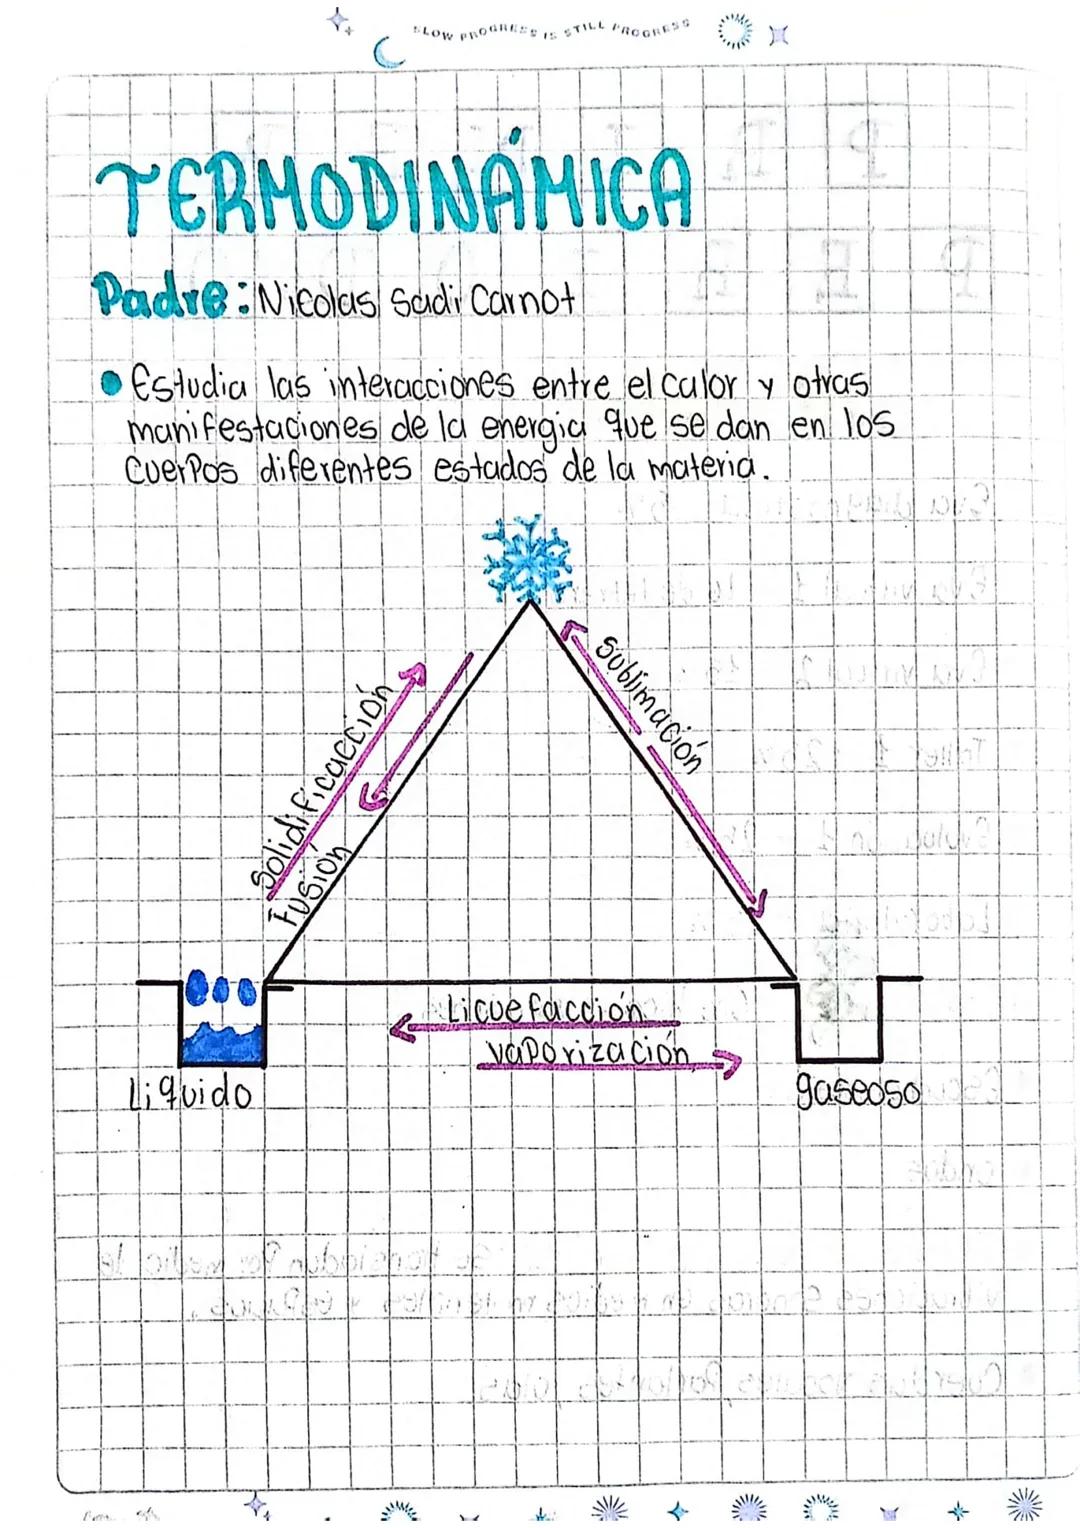 SLOW PROGRESS IS STILL PROGRESS
TERMODINÁMICA
Padre: Nicolas Sadi Carnot
Estudia las interacciones entre el calor y otras
manifestaciones de la energia que se dan en los
cuerpos diferentes estados de la materia.
Sublimación
Solidificacción
Fusión
Licuefacción
vaporización
Liquido
gaseoso